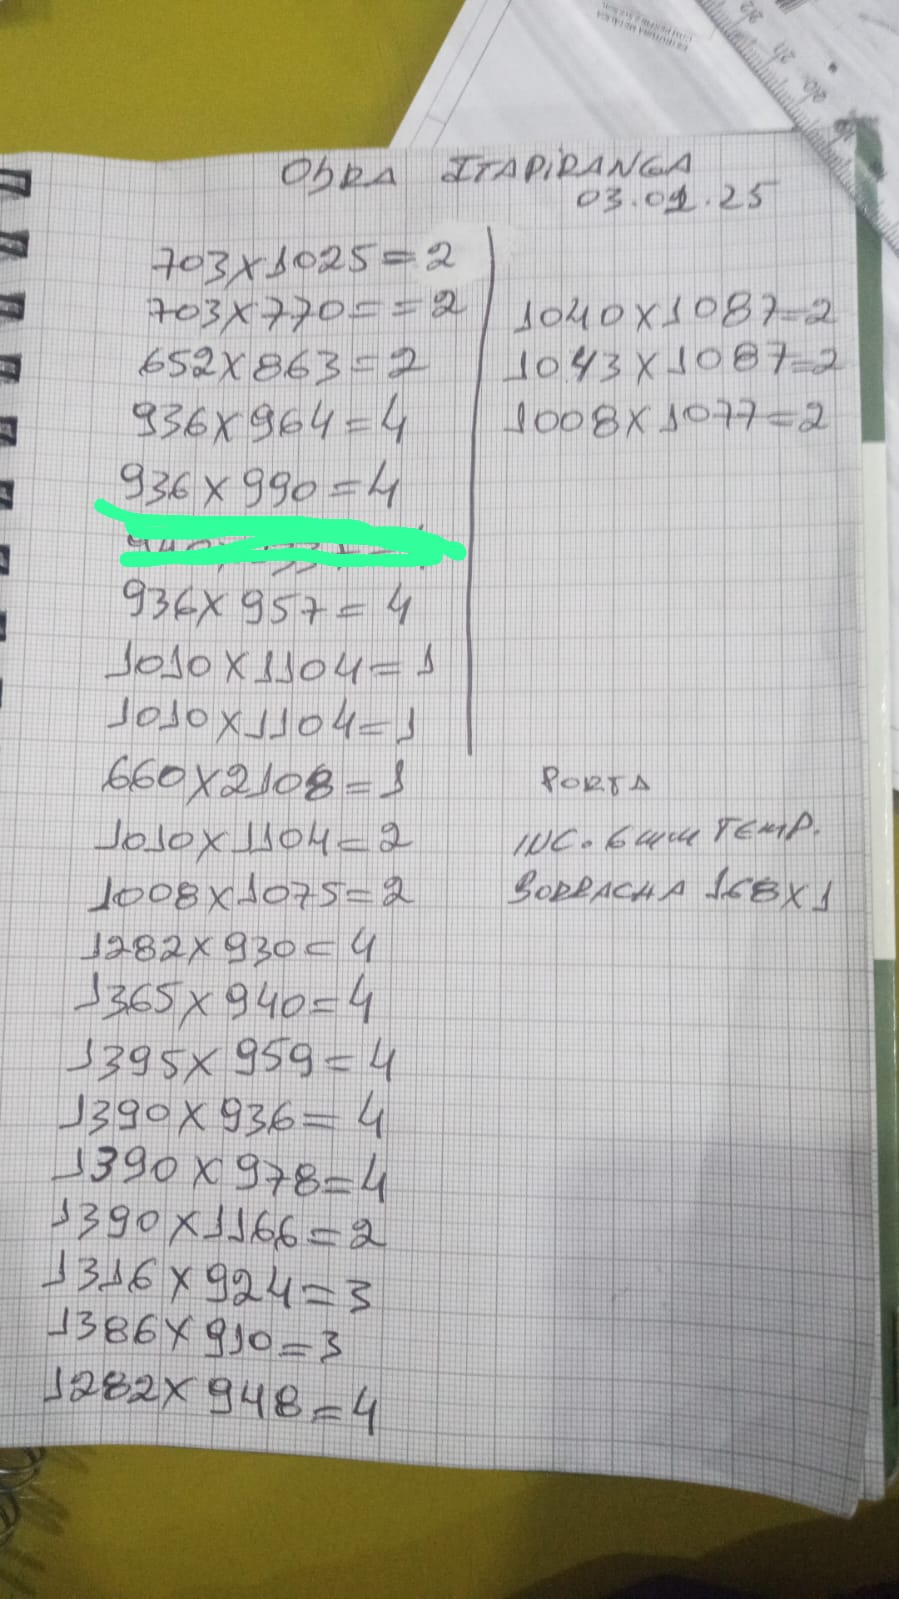 OBRA ITAPIRANGA
03.01.25
703x1025=2
703x770==2
652x863=2
936x964=4
936x990=4
936x957=4
1010x1104=1
1010x1104=1
660x2108=1
1010x1104=2
1008x1075=2
1282x930=4
1365x940=4
1395x959=4
1390x936=4
1390x978=4
1390x1166=2
1316x924=3
1386x910=3
1282x948=4
1040x1087=2
1043x1087=2
1008x1077=2
PORTA
INC. 6mm TEMP.
BORRACHA 168x1